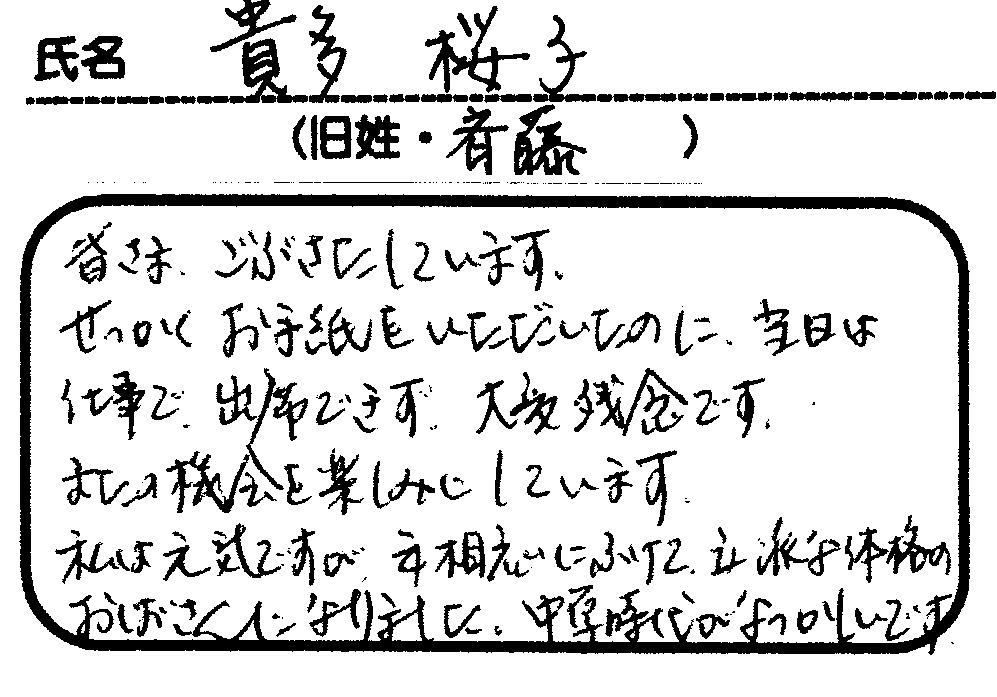 氏名 貴多 桜子
(旧姓・斉藤 )
皆さま、ごぶさたしています。
せっかくお手紙をいただいたのに、当日は
仕事で、出席できず、大変残念です。
またの機会を楽しみにしています。
私は元気ですが、年相応にふけて、立派な体格の
おばさんになりました。中学時代がなつかしいです